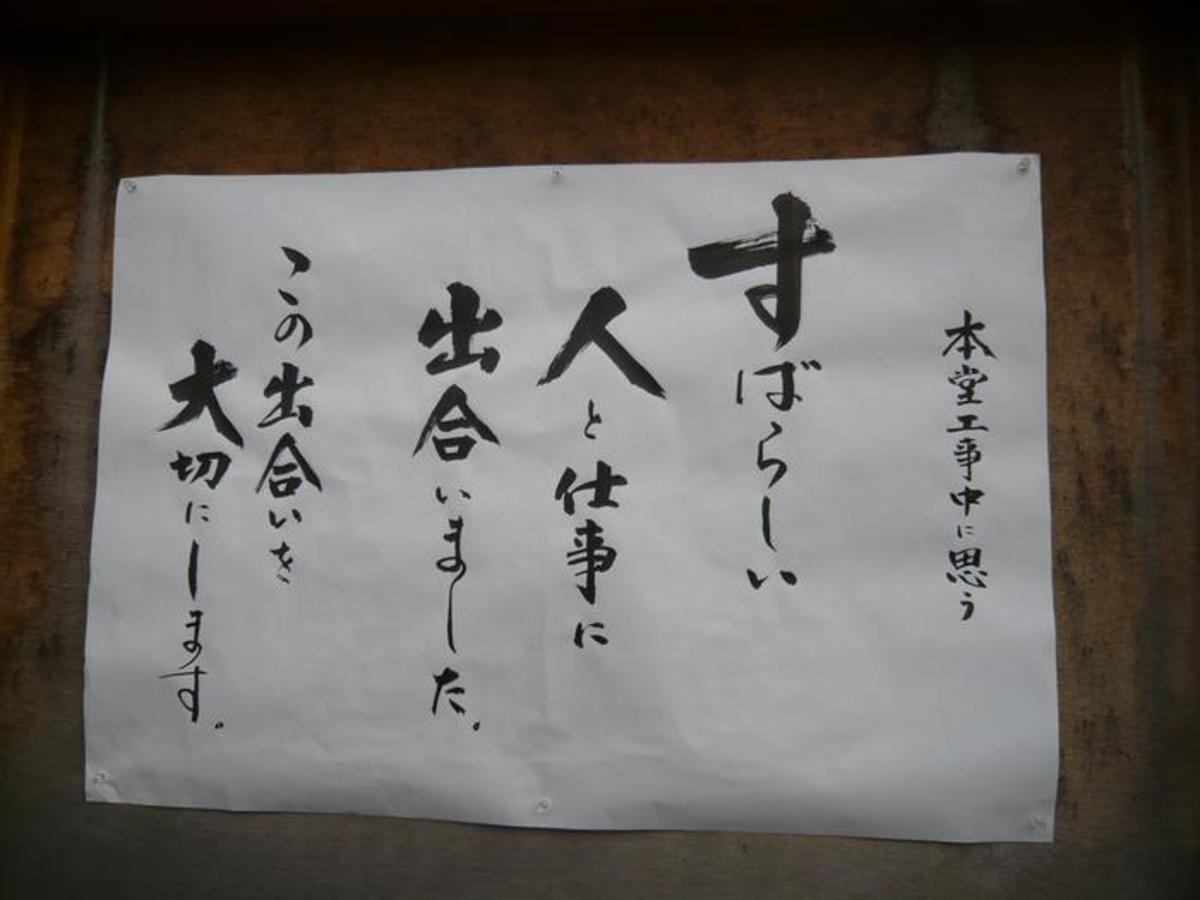 本堂工事中に思う
すばらしい
人と仕事に
出合いました。
この出合いを
大切にします。